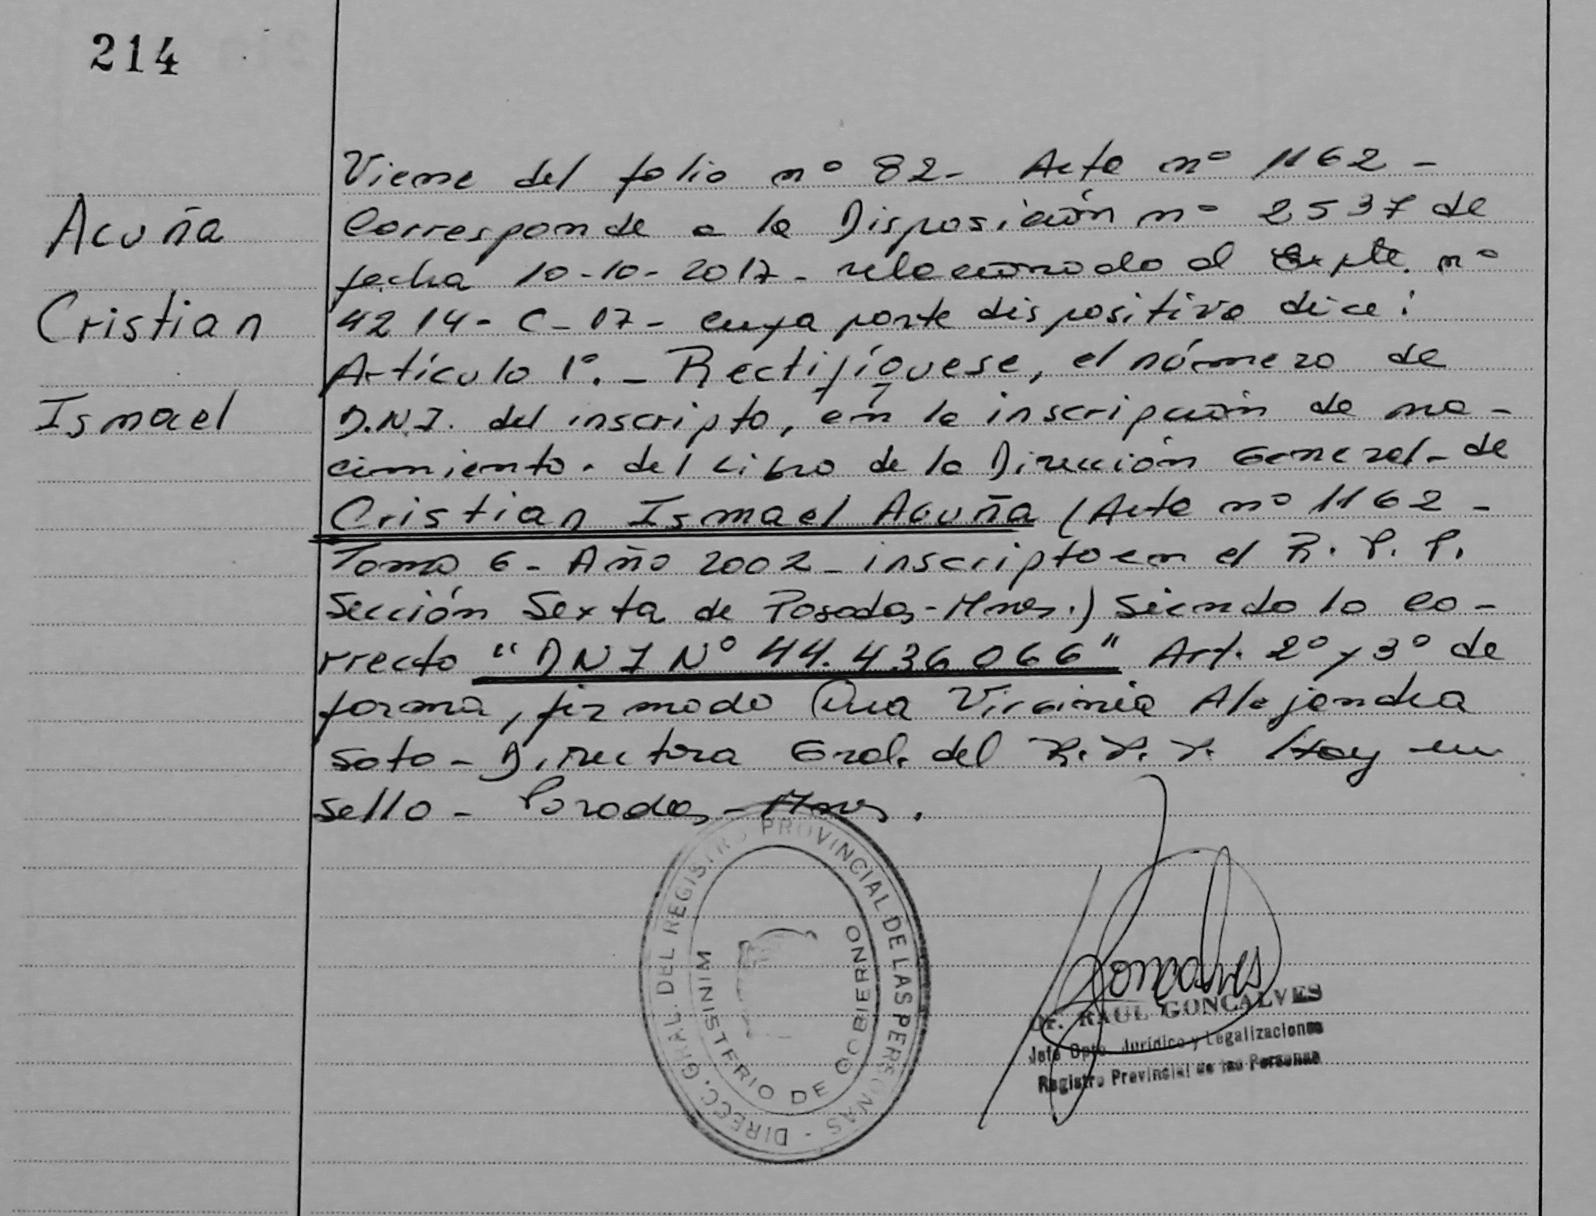 214
Acuña
Cristian
Ismael
Viene del folio nº 82- Acta nº 1162-
Corresponde a la Disposición nº 2537 de
fecha 10-10-2017- relacionado al Expte. nº
4214-C-17- cuya parte dispositiva dice:
Artículo 1º.- Rectifíquese, el número de
D.N.I. del inscripto, en la inscripción de na-
cimiento. del Libro de la Dirección General- de
Cristian Ismael Acuña (Acta nº 1162-
Tomo 6- Año 2002- inscripto en el R.P.P.
Sección Sexta de Posadas-Mnes.) Siendo lo co-
rrecto "DNI Nº 44.436.066" Art. 2º y 3º de
forma, firmado Dra Virginia Alejandra
Soto- Directora Gral. del R.P.P. Hoy en
sello- Posadas-Mnes.
DIRECC. GRAL. DEL REGISTRO PROVINCIAL DE LAS PERSONAS -
MINISTERIO DE GOBIERNO
Goncalves
Of. RAUL GONCALVES
Jefe Dpto. Jurídico y Legalizaciones
Registro Provincial de las Personas